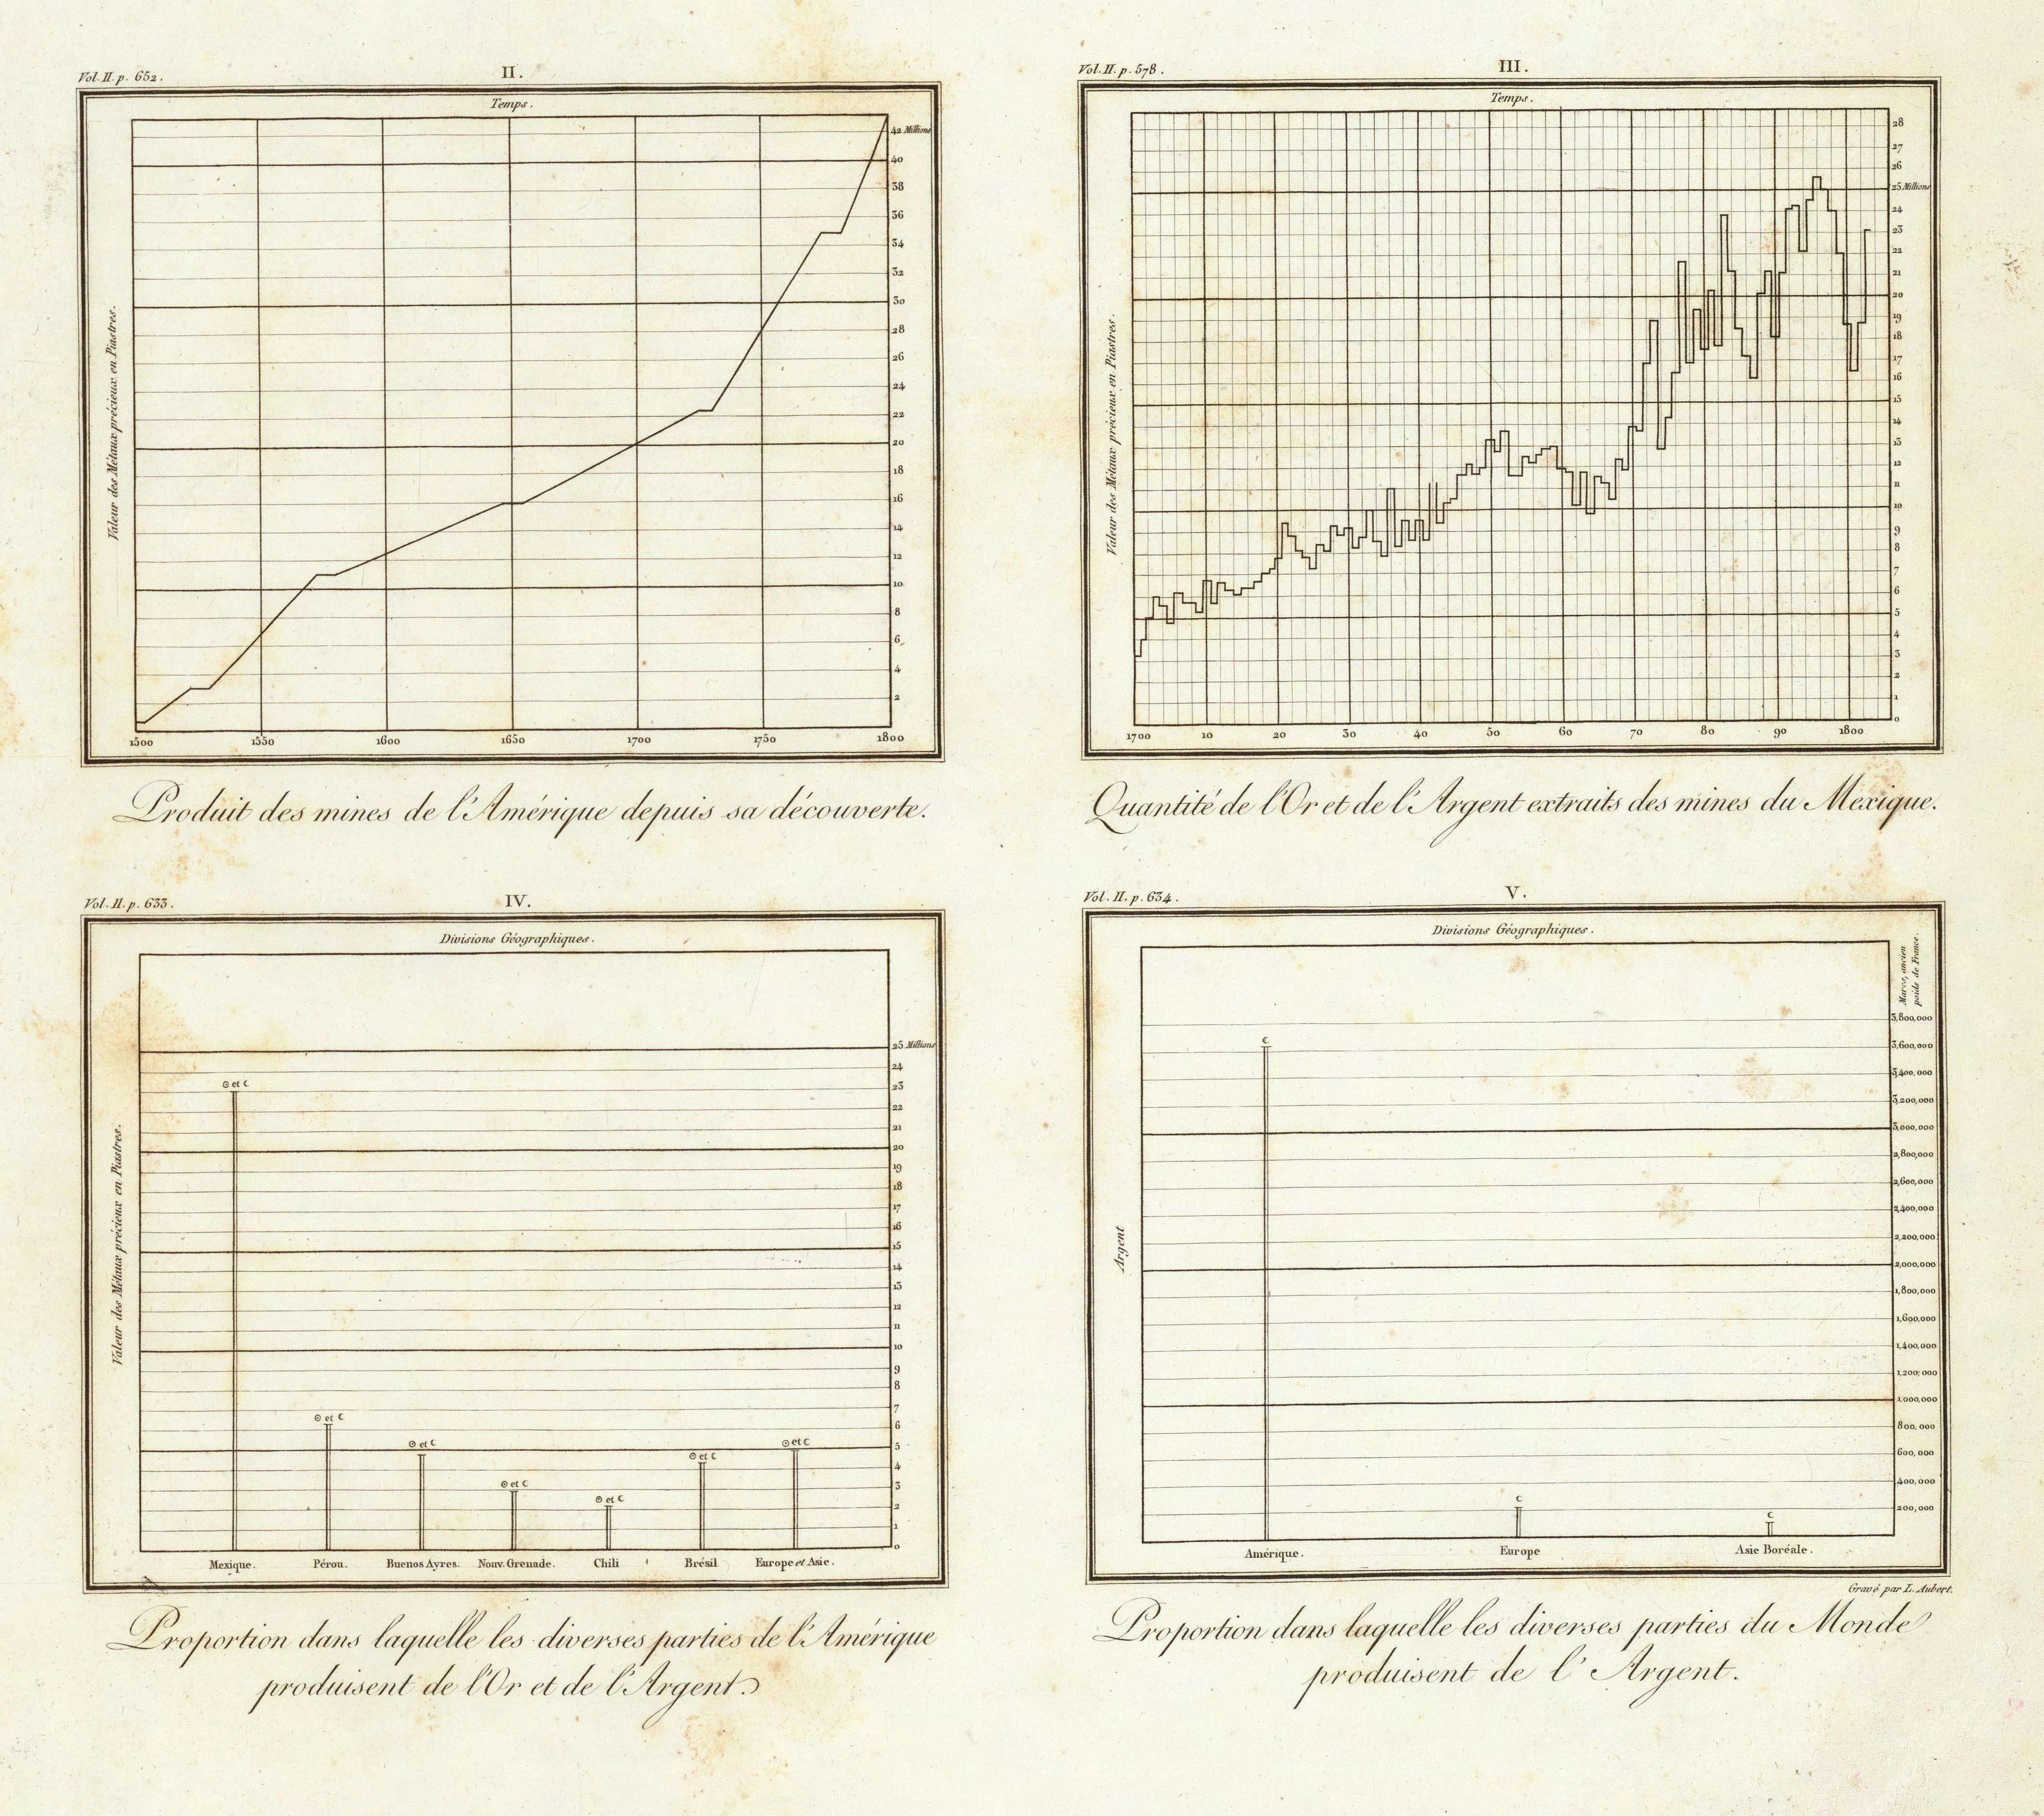 Vol. II. p. 652.
II.
Temps.
Valeur des Métaux précieux en Piastres.
42 Millions
40
38
36
34
32
30
28
26
24
22
20
18
16
14
12
10
8
6
4
2
1500 1550 1600 1650 1700 1750 1800
Produit des mines de l'Amérique depuis sa découverte.
Vol. II. p. 578.
III.
Temps.
Valeur des Métaux précieux en Piastres.
28
27
26
25 Millions
24
23
22
21
20
19
18
17
16
15
14
13
12
11
10
9
8
7
6
5
4
3
2
1
0
1700 10 20 30 40 50 60 70 80 90 1800
Quantité de l'Or et de l'Argent extraits des mines du Mexique.
Vol. II. p. 633.
IV.
Divisions Géographiques.
Valeur des Métaux précieux en Piastres.
25 Millions
24
23
22
21
20
19
18
17
16
15
14
13
12
11
10
9
8
7
6
5
4
3
2
1
0
☉ et ☾
☉ et ☾
☉ et ☾
☉ et ☾
☉ et ☾
☉ et ☾
☉ et ☾
Mexique. Pérou. Buenos Ayres. Nouv. Grenade. Chili Brésil Europe et Asie.
Proportion dans laquelle les diverses parties de l'Amérique
produisent de l'Or et de l'Argent.
Vol. II. p. 634.
V.
Divisions Géographiques.
Marcs, ancien
poids de France.
Argent
3,800,000
3,600,000
3,400,000
3,200,000
3,000,000
2,800,000
2,600,000
2,400,000
2,200,000
2,000,000
1,800,000
1,600,000
1,400,000
1,200,000
1,000,000
800,000
600,000
400,000
200,000
☾
☾
☾
Amérique. Europe Asie Boréale.
Gravé par L. Aubert.
Proportion dans laquelle les diverses parties du Monde
produisent de l'Argent.